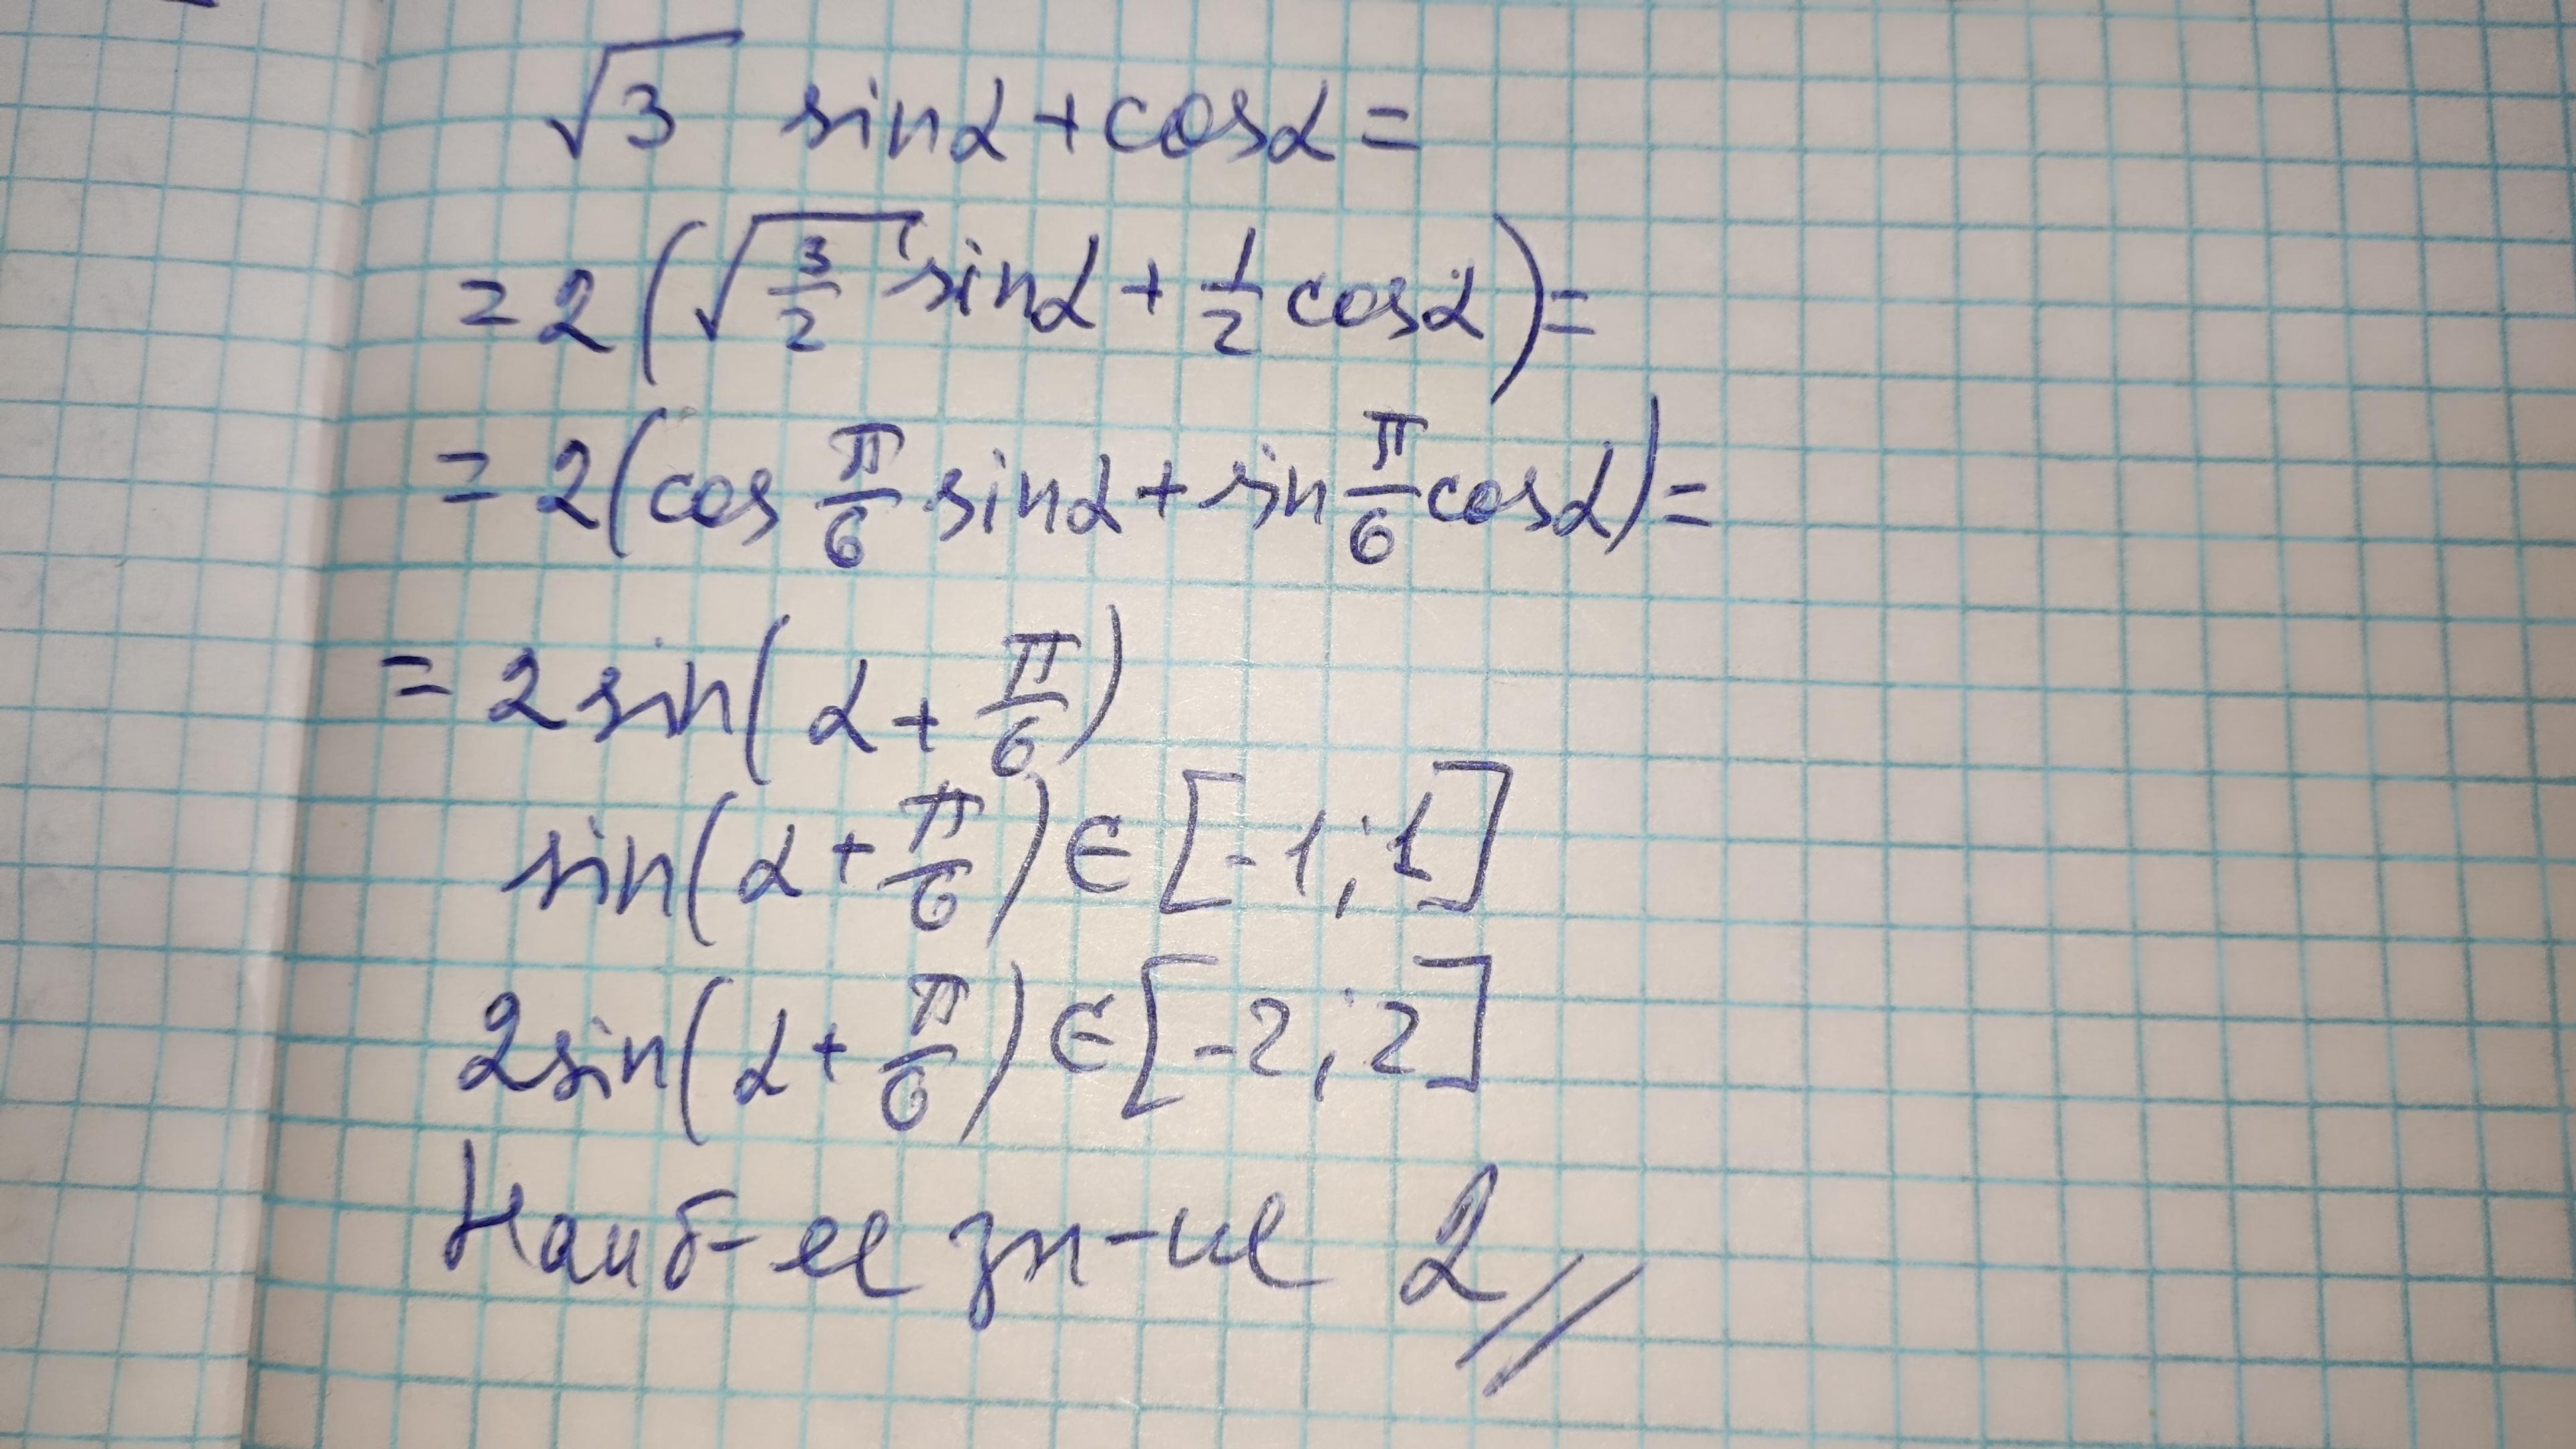 √3 sinα + cosα =
= 2(√(3/2) sinα + 1/2 cosα) =
= 2(cos π/6 sinα + sin π/6 cosα) =
= 2 sin(α + π/6)
sin(α + π/6) ∈ [-1; 1]
2sin(α + π/6) ∈ [-2; 2]
Наиб-ее зн-ие 2